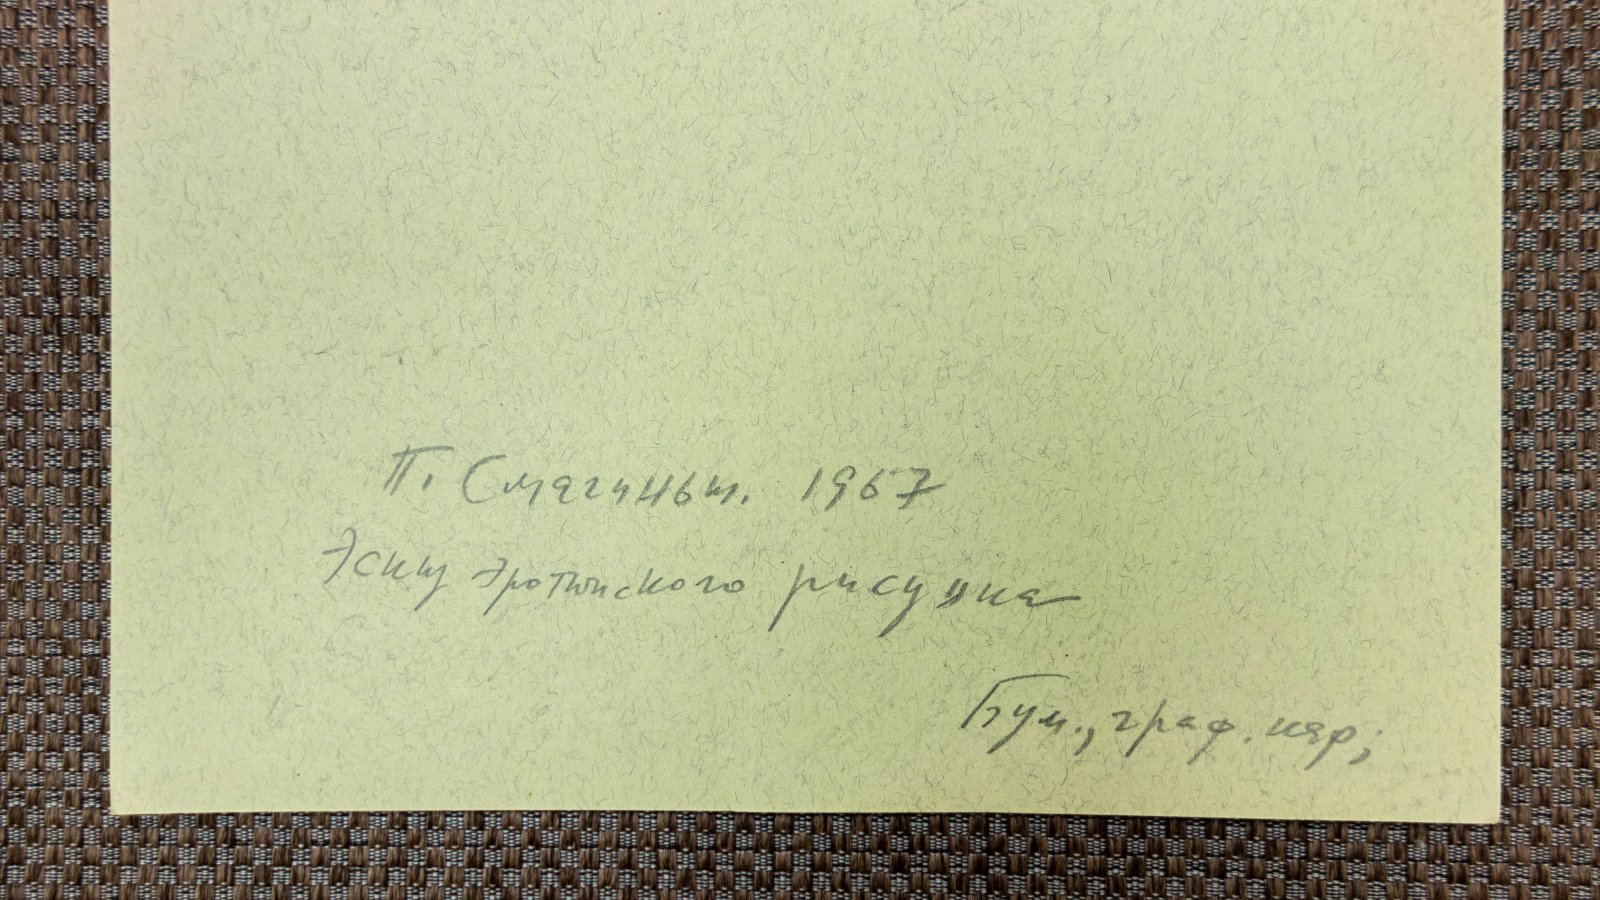 П. Смагиньш. 1967
Эскиз эротического рисунка
Бум., граф. кар;